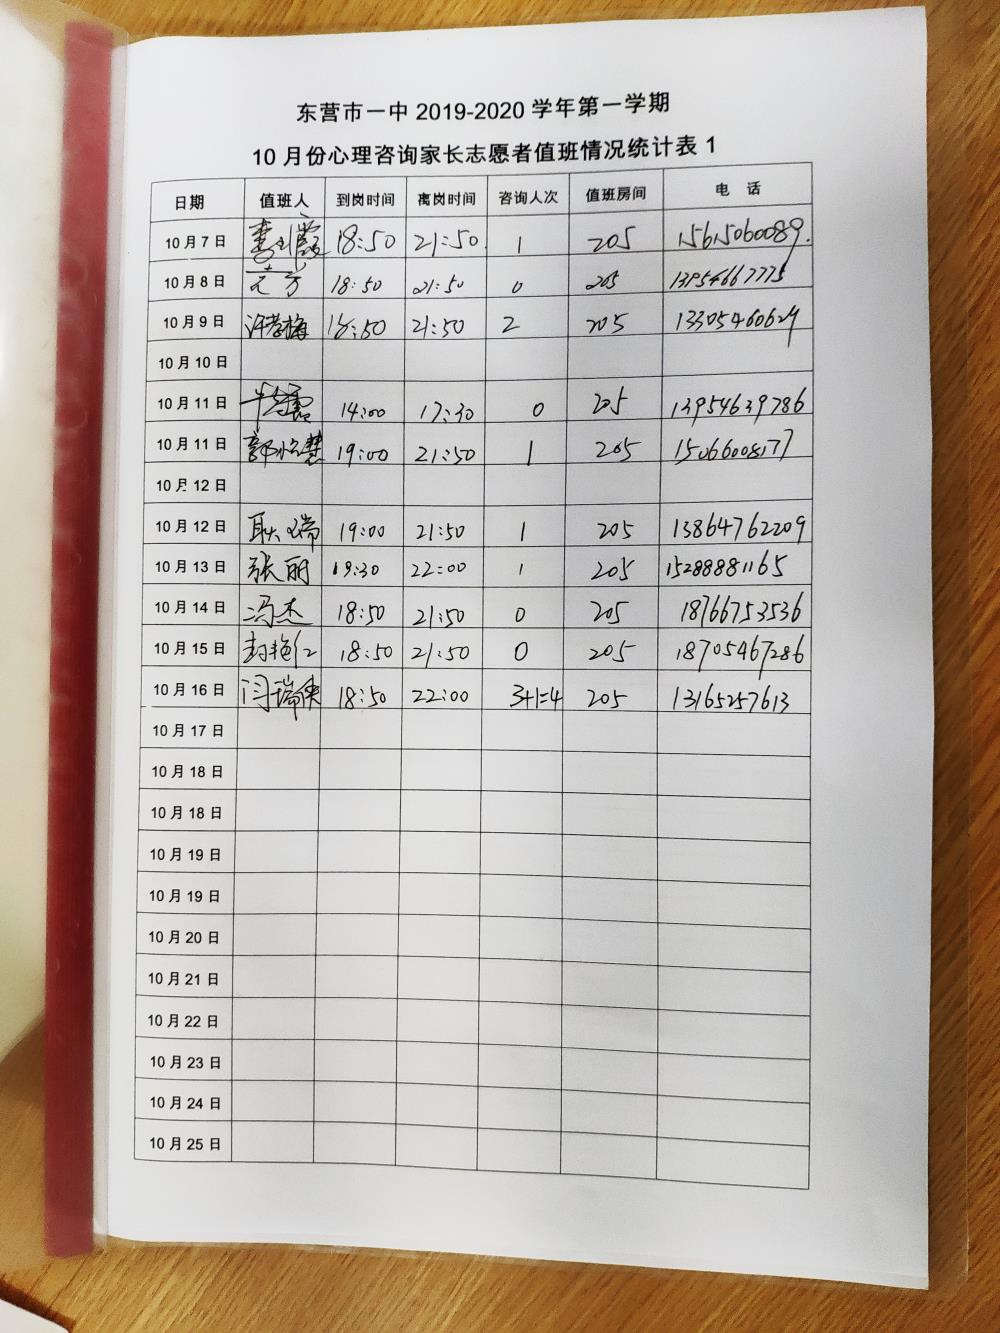 东营市一中 2019-2020 学年第一学期
10 月份心理咨询家长志愿者值班情况统计表 1
日期 值班人 到岗时间 离岗时间 咨询人次 值班房间 电 话
10月7日 18:50 21:50 1 205 15615060089.
10月8日 18:50 21:50 0 205 13954667775
10月9日 许梅 18:50 21:50 2 205 13305460629
10月10日
10月11日 14:00 17:30 0 205 13954639786
10月11日 郭慧 19:00 21:50 1 205 15066008177
10月12日
10月12日 耿瑞 19:00 21:50 1 205 13864762209
10月13日 张丽 19:30 22:00 1 205 15288881165
10月14日 冯杰 18:50 21:50 0 205 18766753536
10月15日 封艳仁 18:50 21:50 0 205 18705467286
10月16日 闫瑞侠 18:50 22:00 3+1=4 205 13165257613
10月17日
10月18日
10月18日
10月19日
10月19日
10月20日
10月21日
10月22日
10月23日
10月24日
10月25日